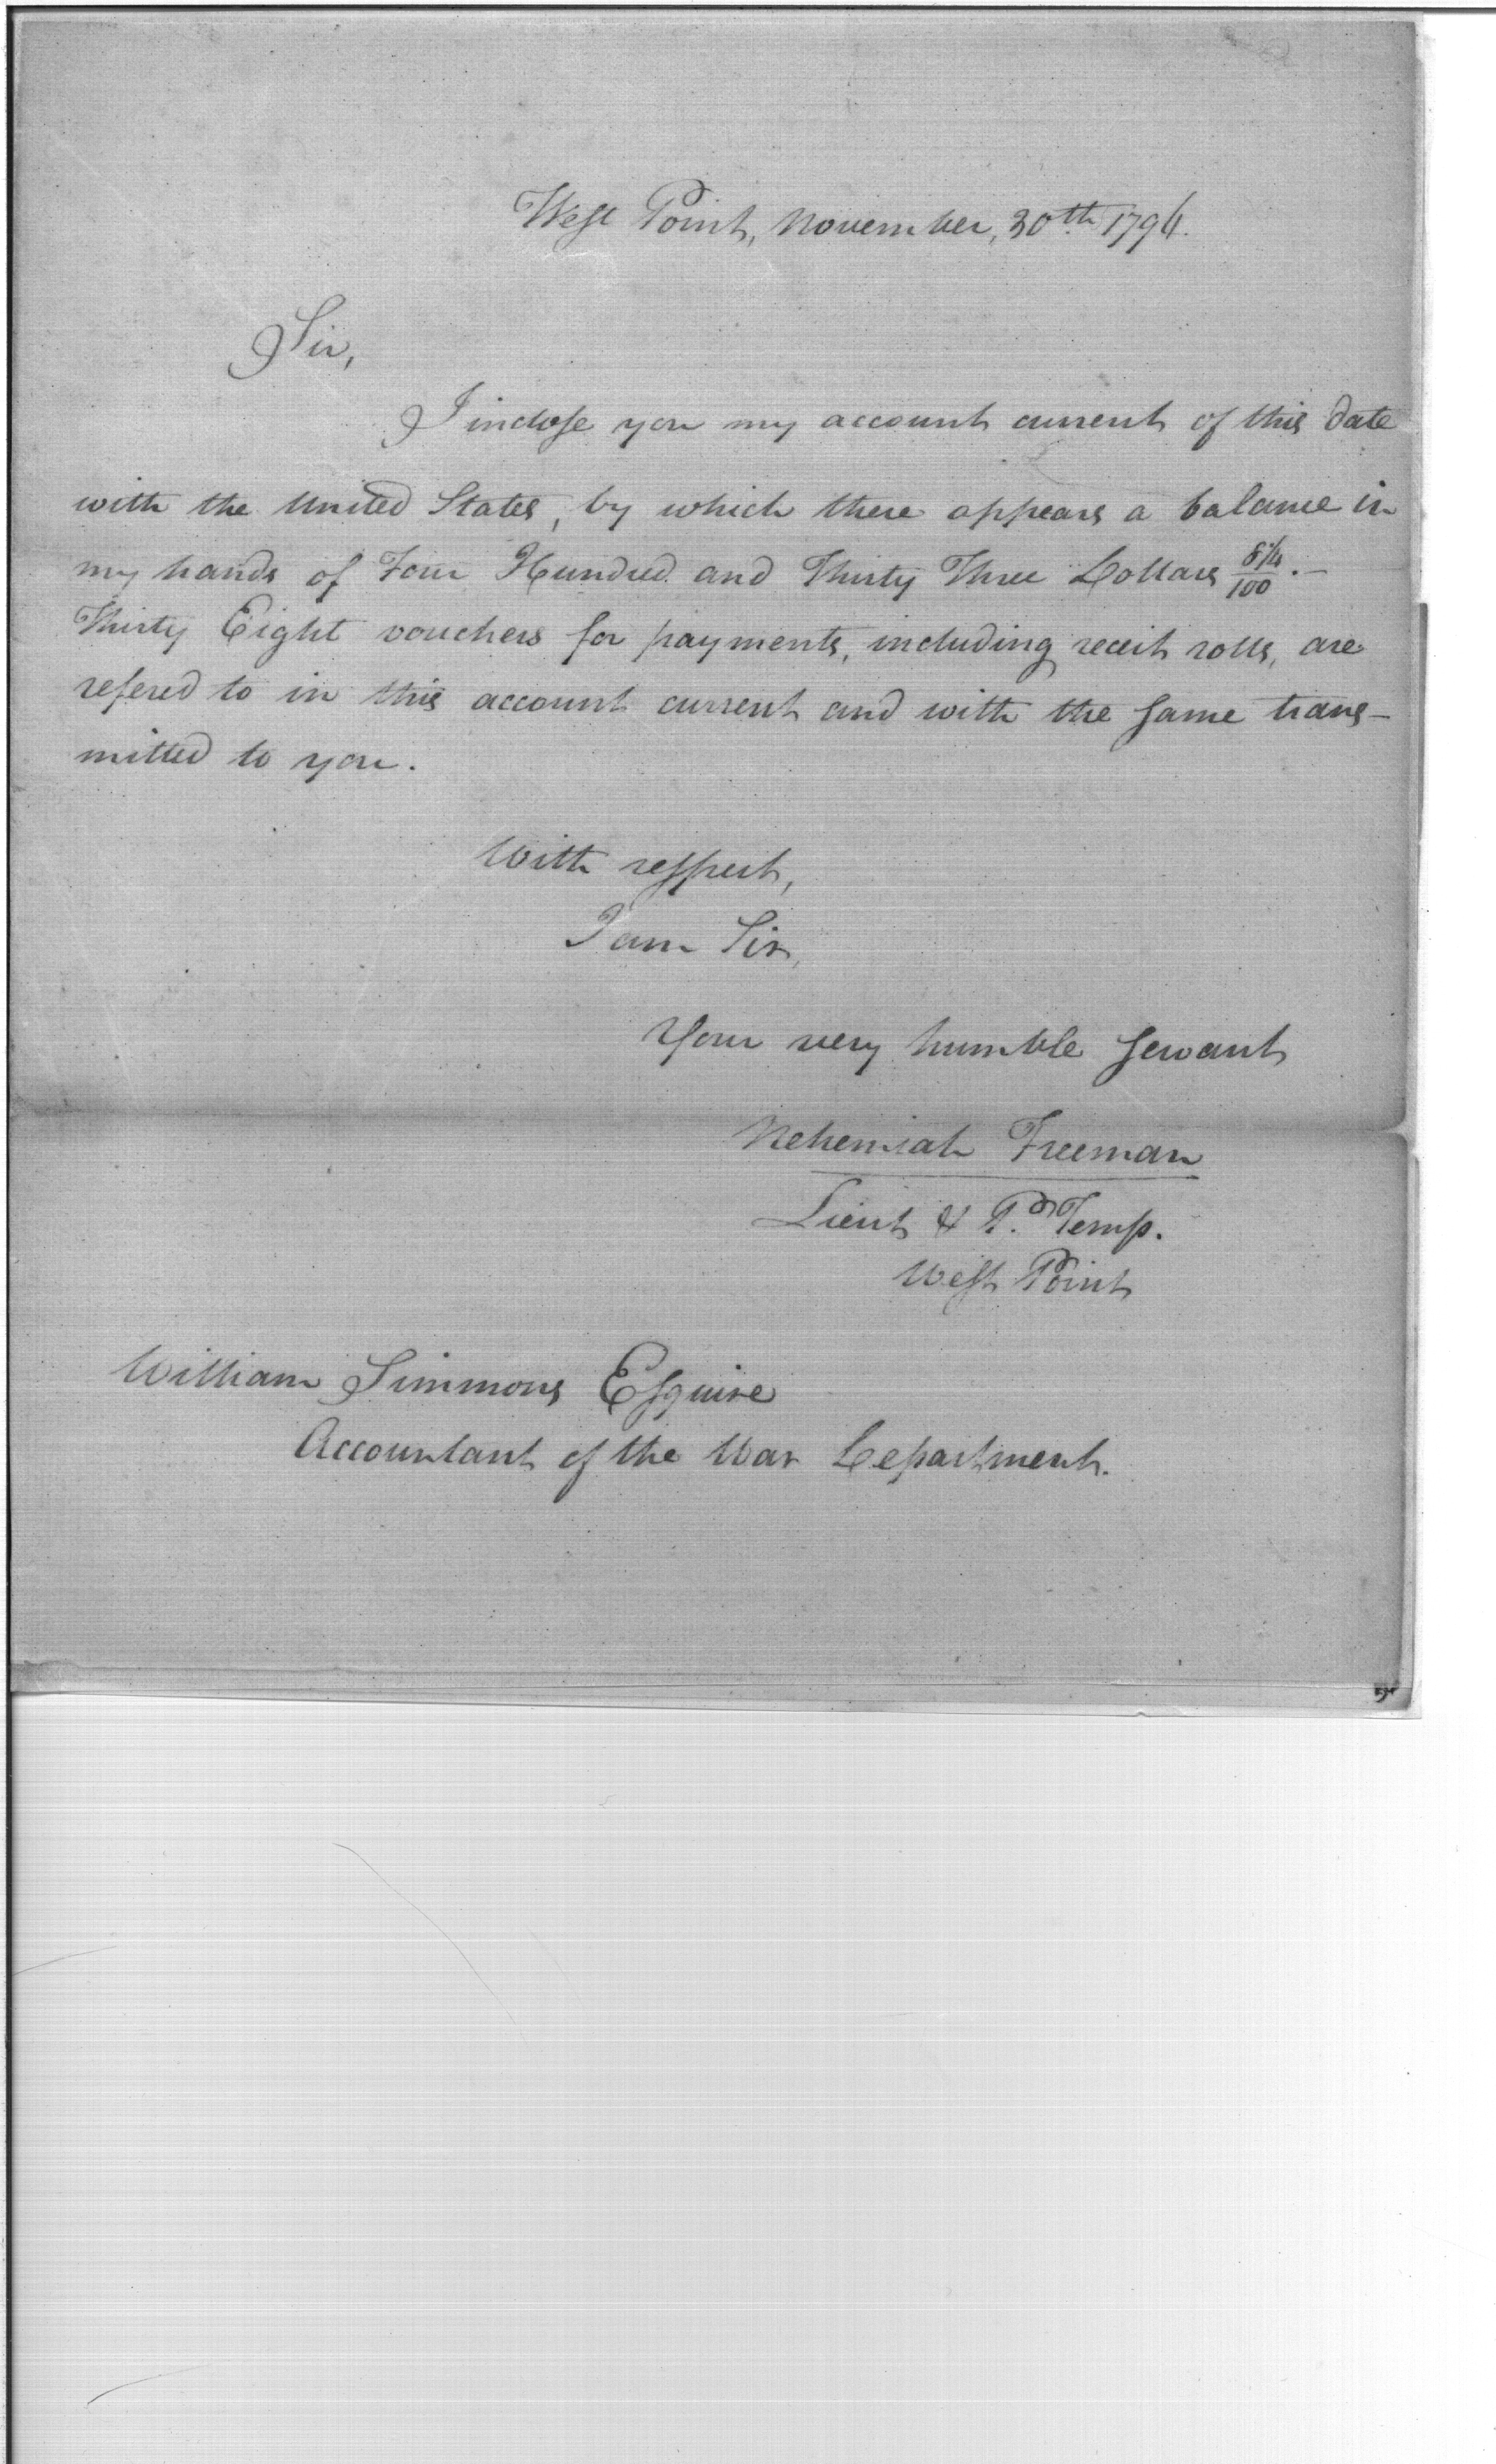 West Point, November, 30th 1796.
Sir,
I inclose you my account current of this date
with the United States, by which there appears a balance in
my hands of Four Hundred and Thirty Three Dollars /100.—
Thirty Eight vouchers for payments, including receit rolls, are
refered to in this account current and with the same trans-
mitted to you.
With respect,
I am Sir,
Your very humble servant
Nehemiah Freeman
Lieut & P. Temp.
West Point
William Simmons Esquire
Accountant of the War Department.